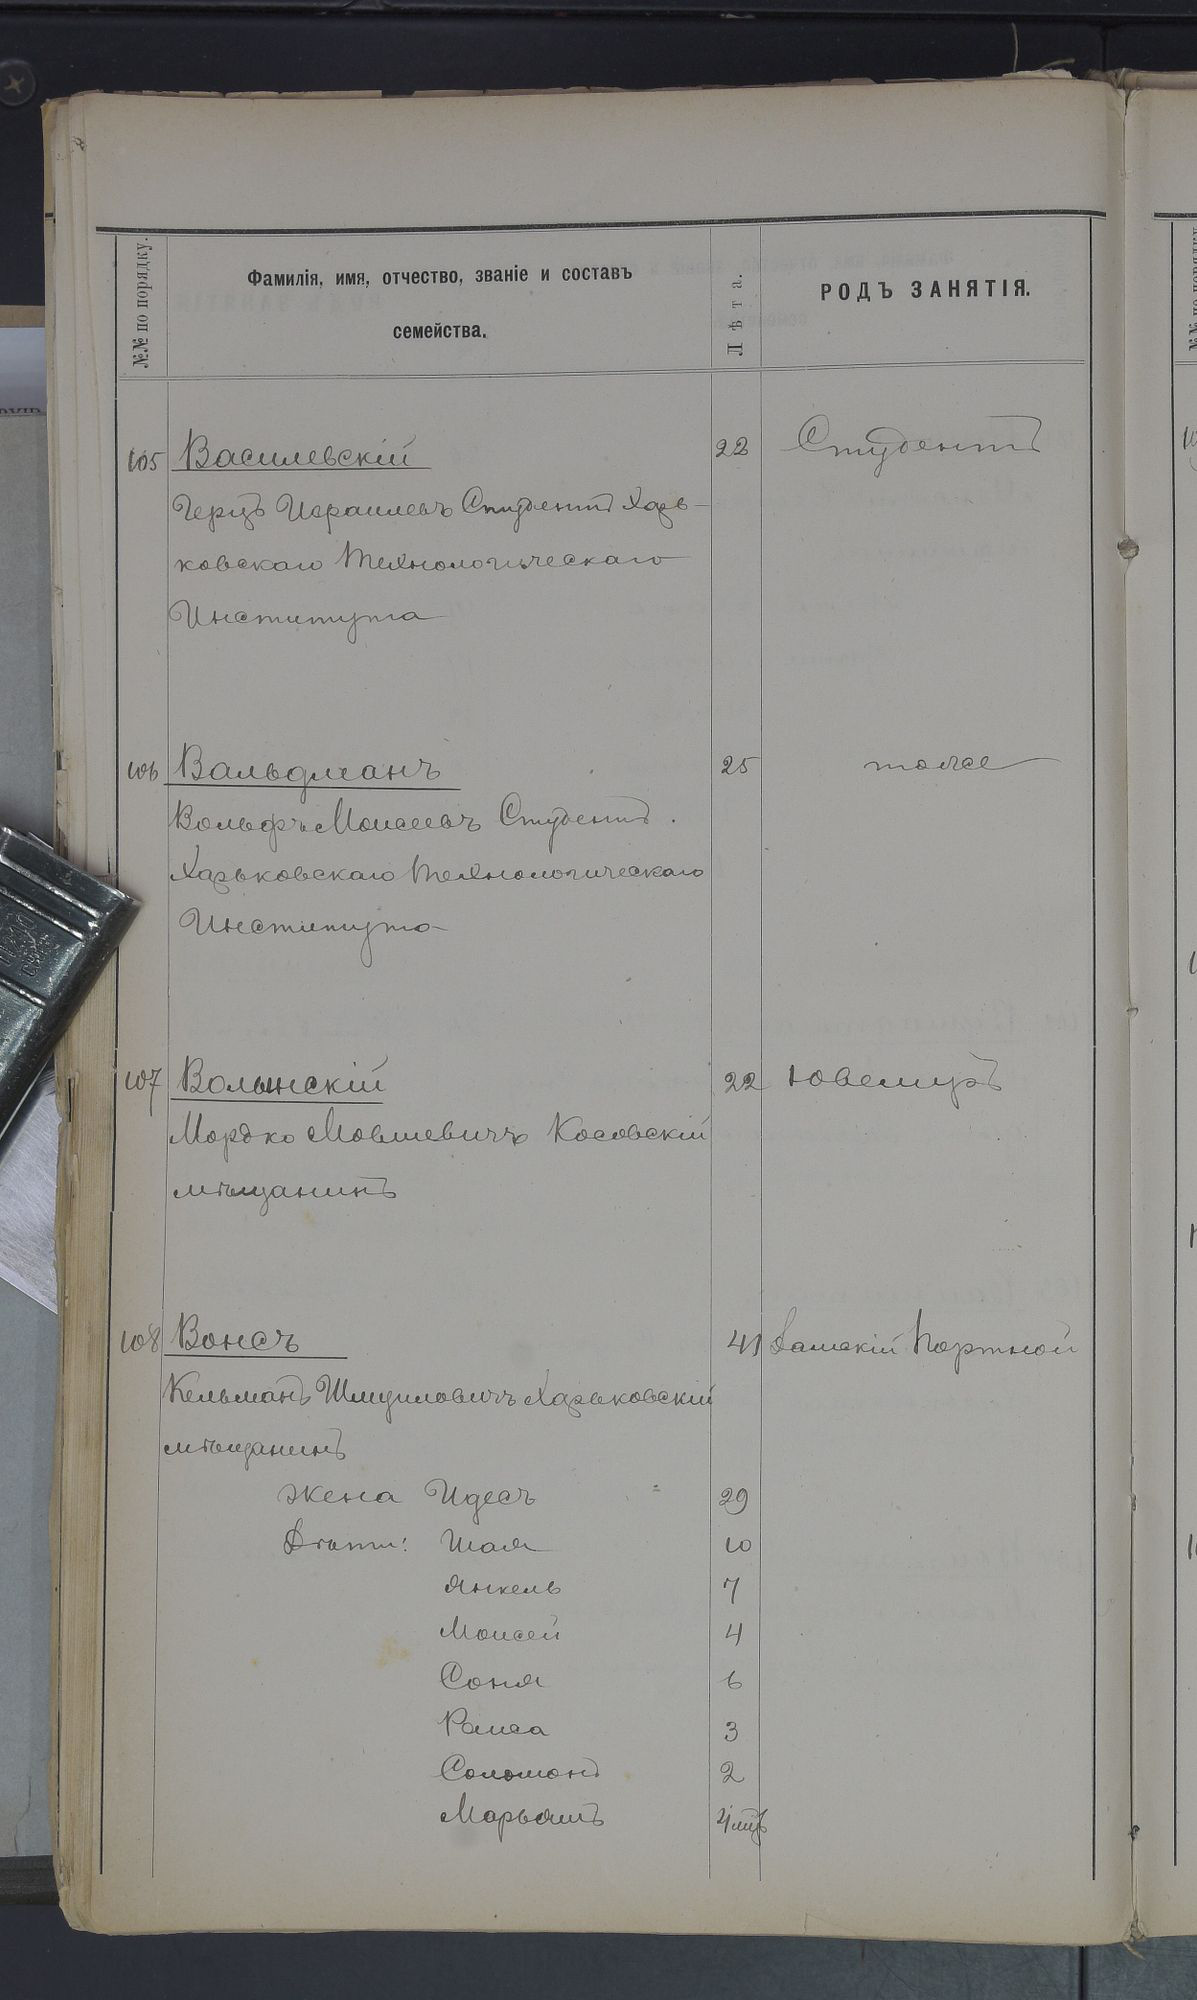 №№ по порядку.
Фамилія, имя, отчество, званіе и составъ
семейства.
Лѣта.
РОДЪ ЗАНЯТІЯ.
105 Василевскій 22 Студентъ
Герцъ Израилевъ Студентъ Харь-
ковскаго Технологическаго
Института
106 Вальдманъ 25 тоже
Вольфъ Моисеевъ Студентъ.
Харьковскаго Технологическаго
Института
107 Волынскій 22 Ювелиръ
Мордко Мовшевичъ Косовскій
мѣщанинъ
108 Вонсъ 41 Дамскій Портной
Кельманъ Шмуиловичъ Харьковскій
мѣщанинъ
жена Идесъ 29
Дѣти: Шая 10
Янкель 7
Моисей 4
Соня 6
Раиса 3
Соломонъ 2
Марьямъ 4 мц